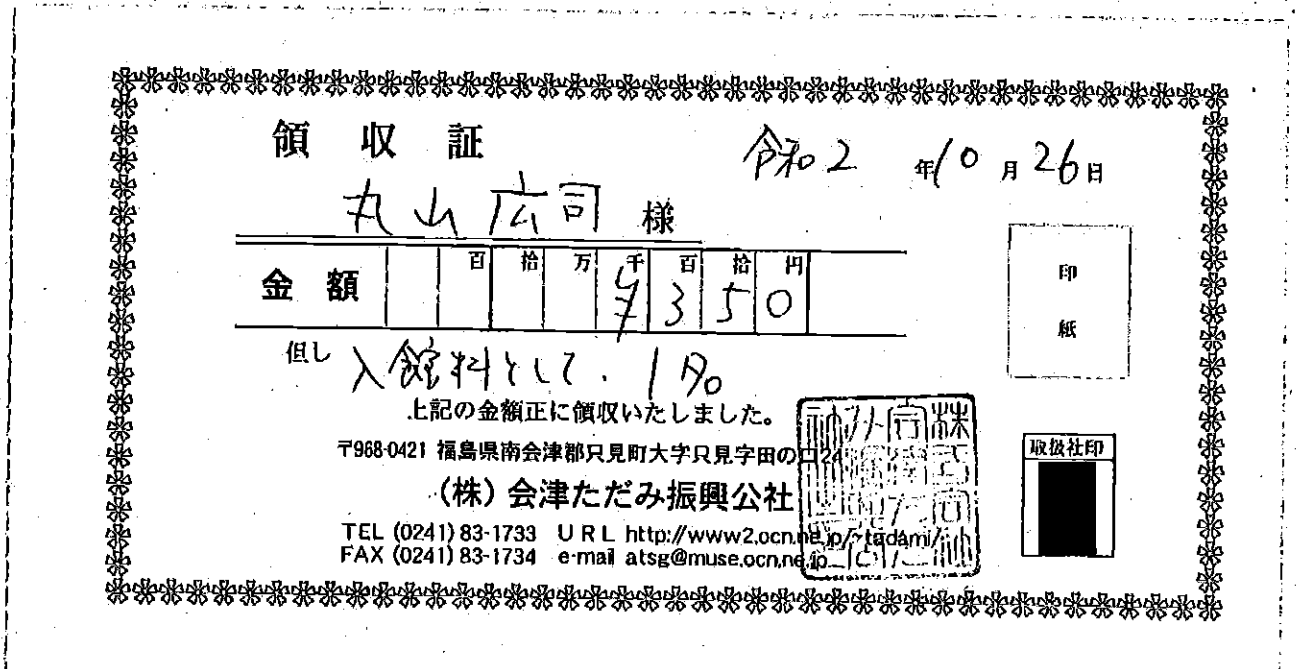 領収証
令和2年10月26日
丸山広司 様
金額 百 拾 万 千 百 拾 円
¥350
但し 入館料として. 1名
上記の金額正に領収いたしました。
〒968-0421 福島県南会津郡只見町大字只見字田の口24
(株)会津ただみ振興公社
TEL (0241) 83-1733 URL http://www2.ocn.ne.jp/~tadami/
FAX (0241) 83-1734 e-mail atsg@muse.ocn.ne.jp
印紙
取扱社印